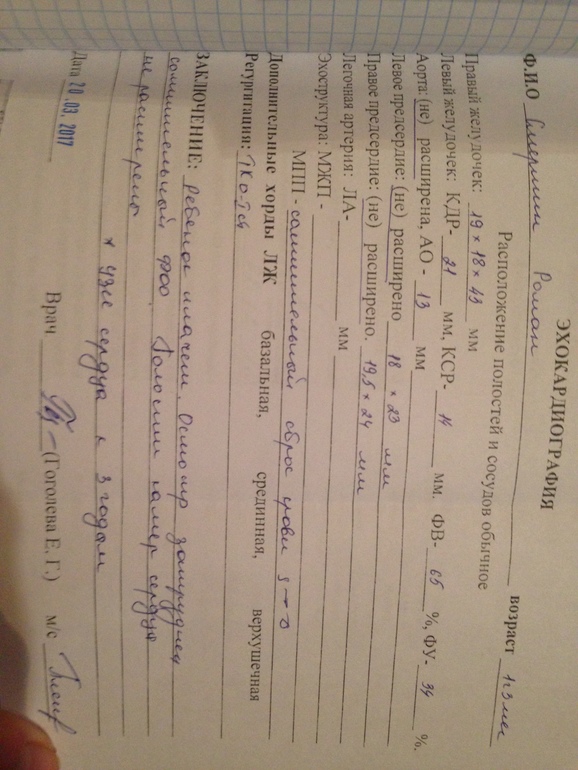 ЭХОКАРДИОГРАФИЯ
Ф.И.О Роман возраст 1г3 мес
Расположение полостей и сосудов обычное
Правый желудочек: 19 × 18 × 43 мм
Левый желудочек: КДР- 21 мм, КСР- 14 мм. ФВ- 65 %, ФУ- 34 %.
Аорта: (не) расширена, АО - 13 мм
Левое предсердие: (не) расширено 18 × 23 мм
Правое предсердие: (не) расширено. 19,5 × 24 мм
Легочная артерия: ЛА- мм
Эхоструктура: МЖП -
МПП - сомнительный сброс крови s → d
Дополнительные хорды ЛЖ базальная, срединная, верхушечная
Регургитация: ТК 0-I ст
ЗАКЛЮЧЕНИЕ: ребенок плачет. Осмотр затруднен
сомнительный ФОО. Полости камер сердца
не расширены
* УЗИ сердца к 3 годам
Дата 20.03.2017 Врач (Гоголева Е. Г.) м/с